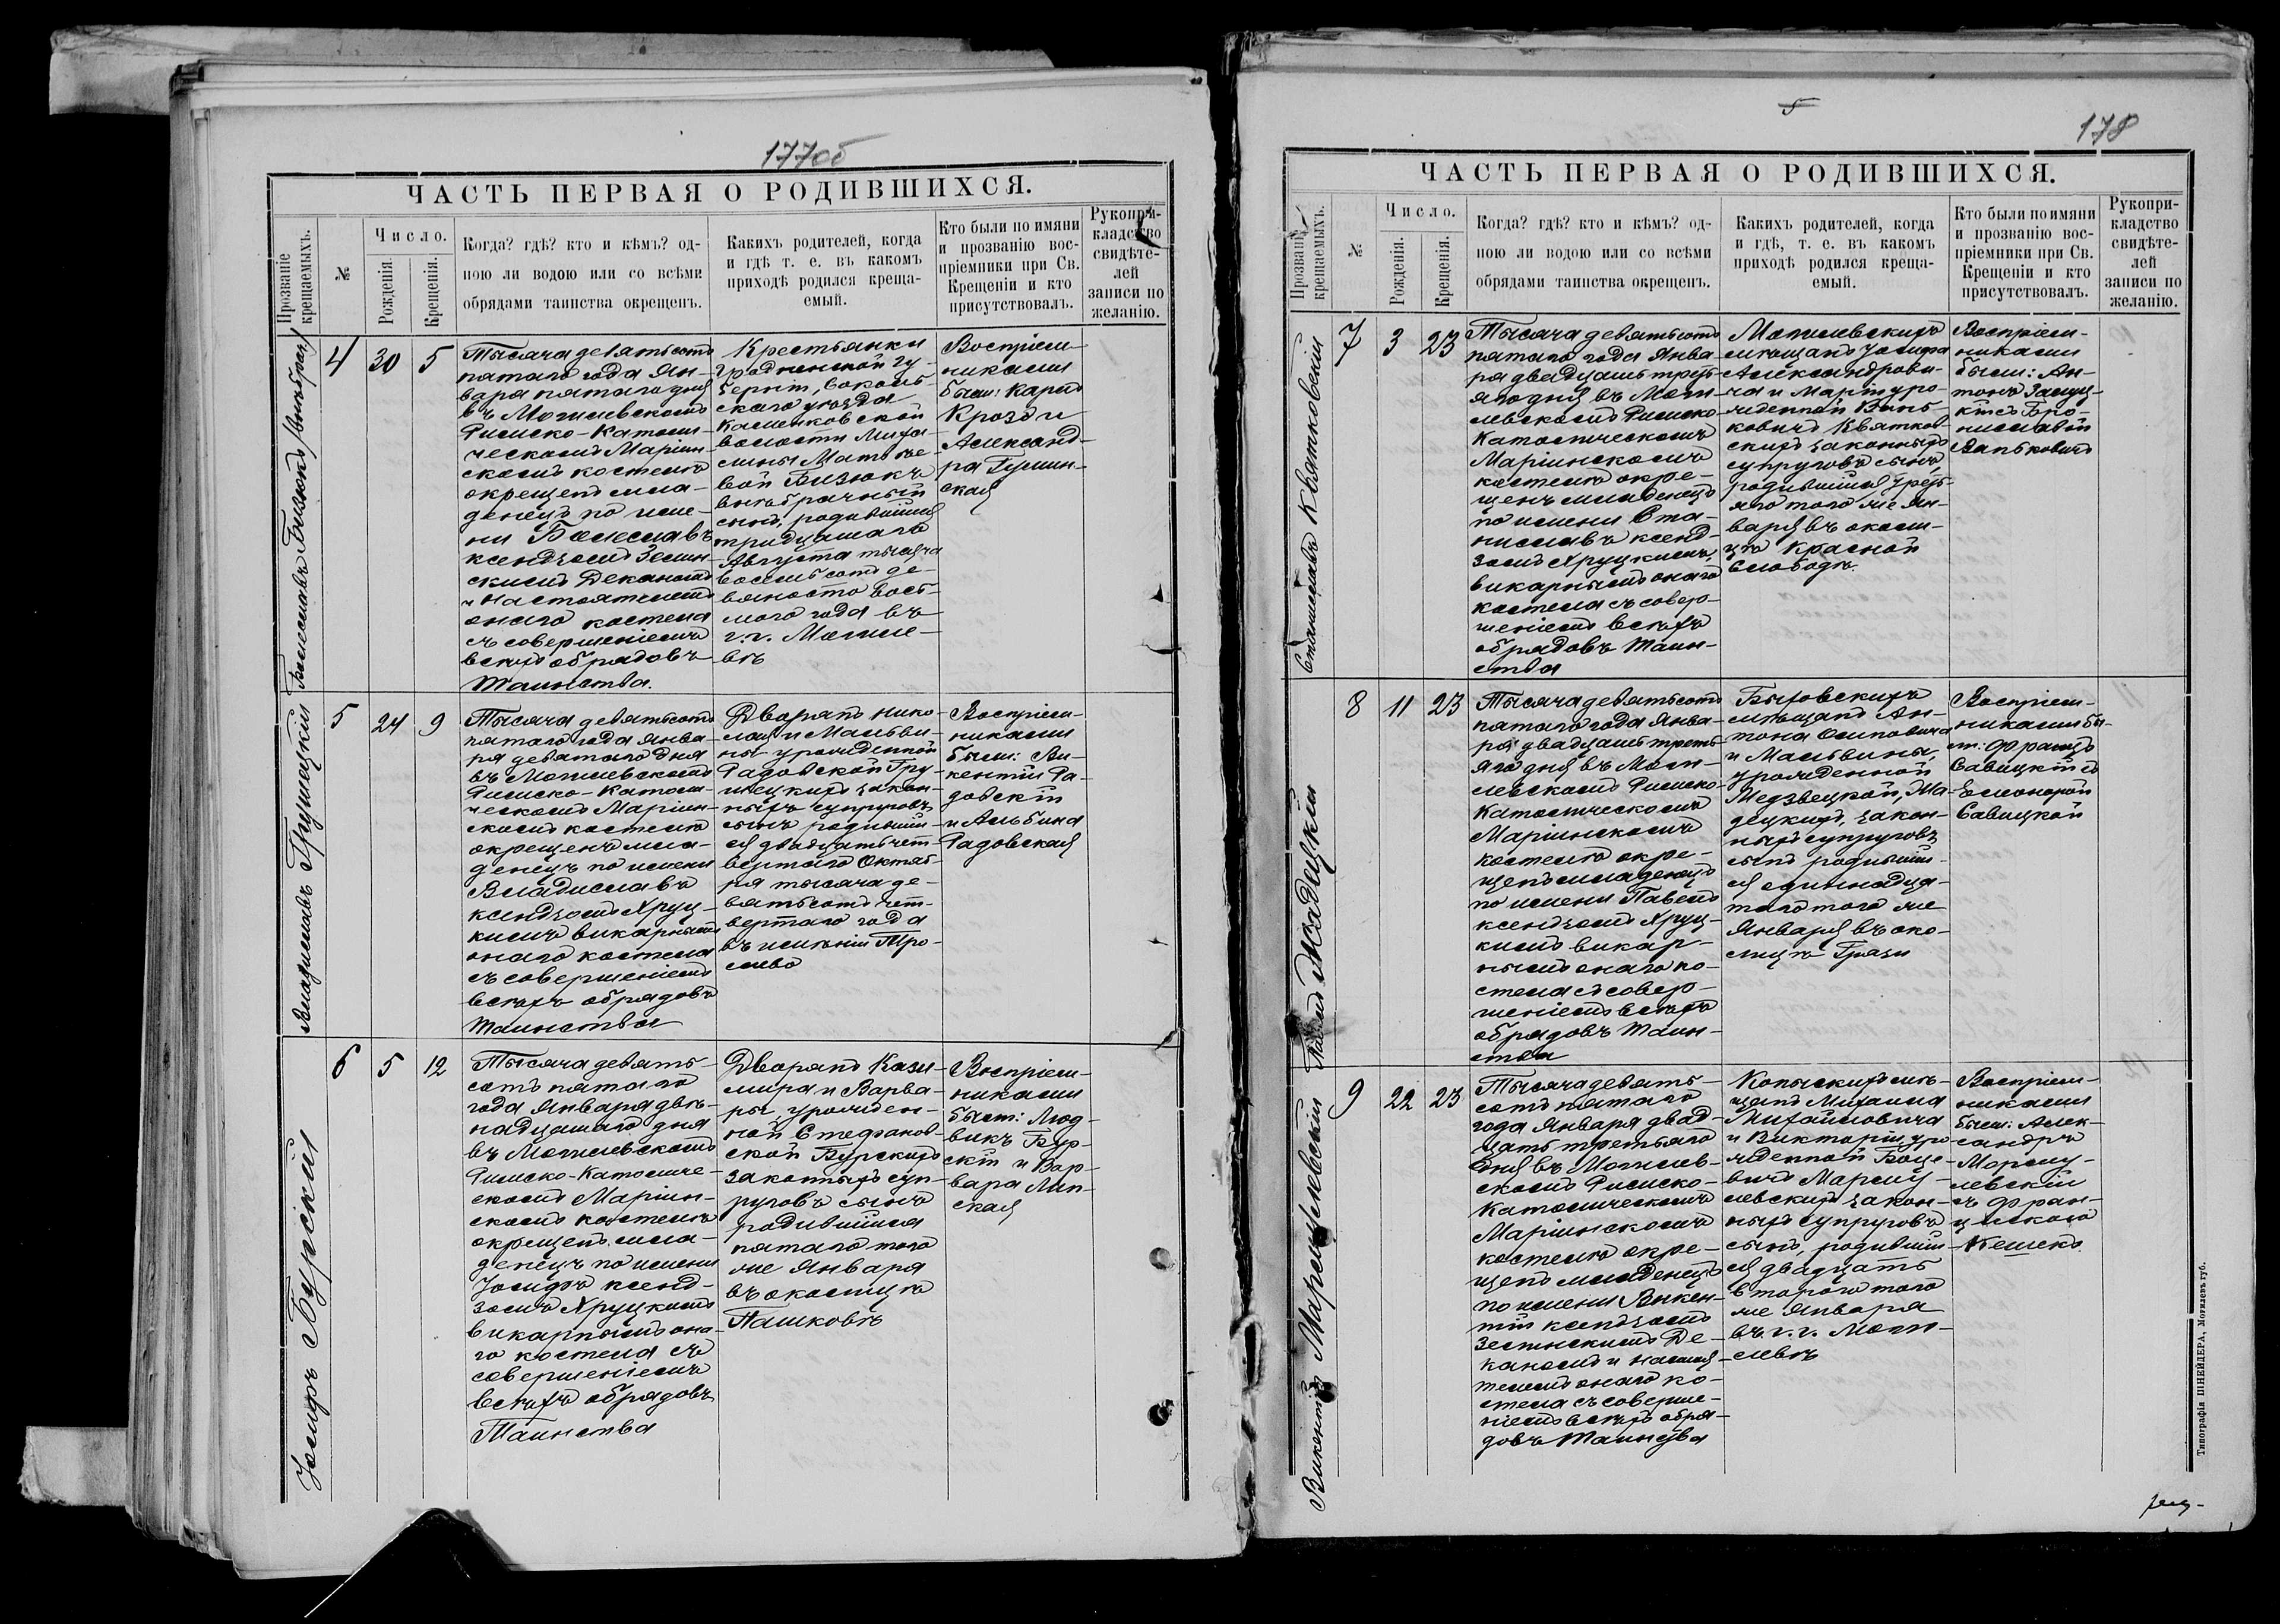 177об
ЧАСТЬ ПЕРВАЯ О РОДИВШИХСЯ.
Прозваніе крещаемыхъ.
№
Число.
Рожденія.
Крещенія.
Когда? гдѣ? кто и кѣмъ? од-
ною ли водою или со всѣми
обрядами таинства окрещенъ.
Какихъ родителей, когда
и гдѣ т. е. въ какомъ
приходѣ родился креща-
емый.
Кто были по имяни
и прозванію вос-
пріемники при Св.
Крещеніи и кто
присутствовалъ.
Рукопри-
кладство
свидѣте-
лей
записи по
желанію.
Болеславъ Бизюкъ /внѣбрач./
4
30
5
Тысяча девятьсотъ
пятаго года Ян-
варя пятаго дня
въ Могилевскомъ
Римско-Католи-
ческомъ Маріин-
скомъ костелѣ
окрещенъ мла-
денецъ по име-
ни Болеславъ
ксендзомъ Зелин-
скимъ Деканомъ
и Настоятелемъ
онаго костела
съ совершеніемъ
всѣхъ обрядовъ
Таинства.
Крестьянки
Гродненской гу-
берніи, Соколь-
скаго уѣзда
Каменковской
волости Миха-
лины Матвѣе-
вой Бизюкъ
внѣбрачный
сынъ, родившійся
тридцатаго
Августа тысяча
восемьсотъ де-
вяносто вось-
маго года въ
г.г. Могиле-
вѣ
Воспріем-
никами
были: Карлъ
Крозъ и
Александ-
ра Гумин-
ская
Владиславъ Грушецкій
5
24
9
Тысяча девятьсотъ
пятаго года Янва-
ря девятаго дня
въ Могилевскомъ
Римско-Католи-
ческомъ Маріин-
скомъ костелѣ
окрещенъ мла-
денецъ по имени
Владиславъ
ксендзомъ Хруц-
кимъ викарнымъ
онаго костела
съ совершеніемъ
всѣхъ обрядовъ
Таинства
Дворянъ Нико-
лая и Мальви-
ны урожденной
Радовской Гру-
шецкихъ закон-
ныхъ супруговъ
сынъ родивший-
ся двадцать чет-
вертаго Октяб-
ря тысяча де-
вятьсотъ чет-
вертаго года
въ имѣніи Тро-
Воспріем-
никами
были: Ви-
кентій Ра-
довскій
и Альбина
Радовская
Іосифъ Бурскій
6
5
12
Тысяча девять-
сотъ пятаго
года Января двѣ-
надцатаго дня
въ Могилевскомъ
Римско-Католиче-
скомъ Маріин-
скомъ костелѣ
окрещенъ мла-
денецъ по имени
Іосифъ ксенд-
зомъ Хруцкимъ
викарнымъ она-
го костела съ
совершеніемъ
всѣхъ обрядовъ
Таинства
Дворянъ Кази-
мира и Варва-
ры, урожден-
ной Стефанов-
ской Бурскихъ
законныхъ суп-
руговъ сынъ
родившійся
пятаго того
же Января
въ околицѣ
Пашковѣ
Воспріем-
никами
были: Люд-
викъ Бур-
скій и Вар-
вара Лип-
ская
5
178
ЧАСТЬ ПЕРВАЯ О РОДИВШИХСЯ.
Прозваніе крещаемыхъ.
№
Число.
Рожденія.
Крещенія.
Когда? гдѣ? кто и кѣмъ? од-
ною ли водою или со всѣми
обрядами таинства окрещенъ.
Какихъ родителей, когда
и гдѣ, т. е. въ какомъ
приходѣ родился креща-
емый.
Кто были по имяни
и прозванію вос-
пріемники при Св.
Крещеніи и кто
присутствовалъ.
Рукопри-
кладство
свидѣте-
лей
записи по
желанію.
Станиславъ Квятковскій
7
3
23
Тысяча девятьсотъ
пятаго года Янва-
ря двадцать треть-
яго дня въ Моги-
левскомъ Римско-
Католическомъ
Маріинскомъ
костелѣ окре-
щенъ младенецъ
по имени Ста-
ниславъ ксенд-
зомъ Хруцкимъ,
викарнымъ онаго
костела съ совер-
шеніемъ всѣхъ
обрядовъ Таин-
ства
Могилевскихъ
мѣщанъ Іосифа
Александрови-
ча и Маріи уро-
жденной Вань-
ковичъ Квятков-
скихъ законныхъ
супруговъ сынъ,
родившійся треть-
яго того же Ян-
варя въ околи-
цѣ Красной
Слободѣ.
Воспріем-
никами
были: Ан-
тонъ
съ Бро-
ниславой
Ванькович
Павелъ Жадецкій
8
11
23
Тысяча девятьсотъ
пятаго года Янва-
ря двадцать треть-
яго дня въ Моги-
левскомъ Римско-
Католическомъ
Маріинскомъ
костелѣ окре-
щенъ младенецъ
по имени Павелъ
ксендзомъ Хруц-
кимъ викар-
нымъ онаго ко-
стела съ совер-
шеніемъ всѣхъ
обрядовъ Таин-
ства
Быховскихъ
мѣщанъ Ан-
тона Осиповича
и Мальвины,
урожденной
Медзвецкой, Жа-
децкихъ, закон-
ныхъ супруговъ
сынъ родивший-
ся одиннадца-
таго того же
Января въ око-
лицѣ Грязи
Воспріем-
никами бы-
ли: Францъ
Савицкій съ
Элеонорой
Савицкой
Викентій Марцулевскій
9
22
23
Тысяча девять-
сотъ пятаго
года Января двад-
цать третьяго
дня въ Могилев-
скомъ Римско-
Католическомъ
Маріинскомъ
костелѣ окре-
щенъ младенецъ
по имени Викен-
тій ксендзомъ
Зелинскимъ Де-
каномъ и Настоя-
телемъ онаго ко-
стела съ соверше-
ніемъ всѣхъ обря-
довъ Таинства
Копыскихъ мѣ-
щанъ Михаила
Михайловича
и Викторіи, уро-
жденной Боце-
вичъ Марцу-
левскихъ закон-
ныхъ супруговъ
сынъ, родивший-
ся двадцать
второго того
же Января
въ г.г. Моги-
левѣ
Воспріем-
никами
были: Алек-
сандръ
Марцу-
левскій
съ Фран-
циской
Типографія ШНЕЙДЕРА, Могилевъ губ.